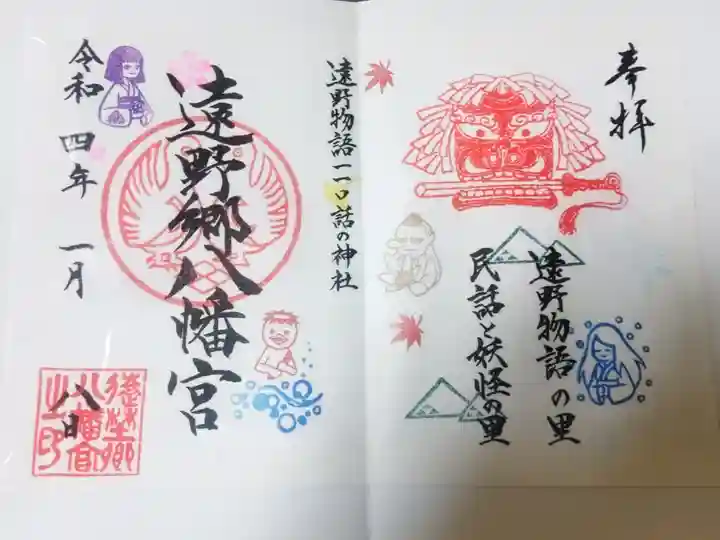 奉拝
遠野物語の里
民話と妖怪の里
遠野物語一一〇話の神社
遠野郷八幡宮
令和四年一月
八日
遠野郷
八幡宮
之印